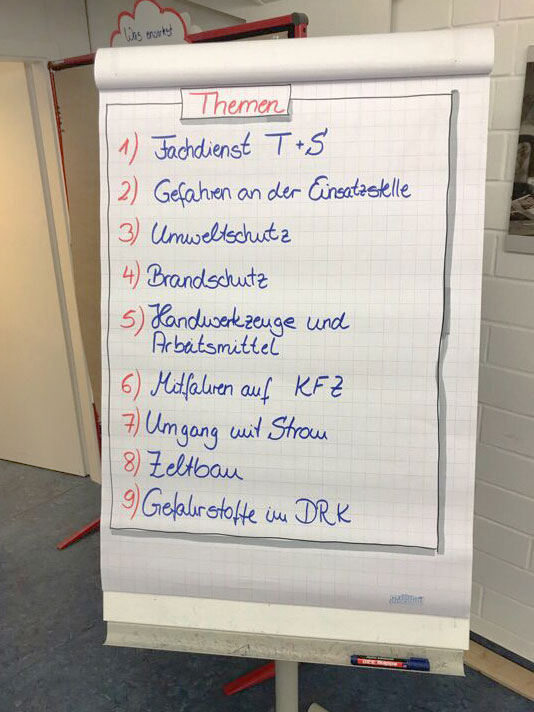 Was erwartet
Themen
1) Fachdienst T+S
2) Gefahren an der Einsatzstelle
3) Umweltschutz
4) Brandschutz
5) Handwerkzeuge und
Arbeitsmittel
6) Mitfahren auf KFZ
7) Umgang mit Strom
8) Zeltbau
9) Gefahrstoffe im DRK